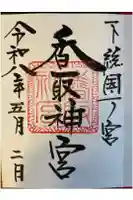 下総国一ノ宮
香取神宮
令和八年五月二日